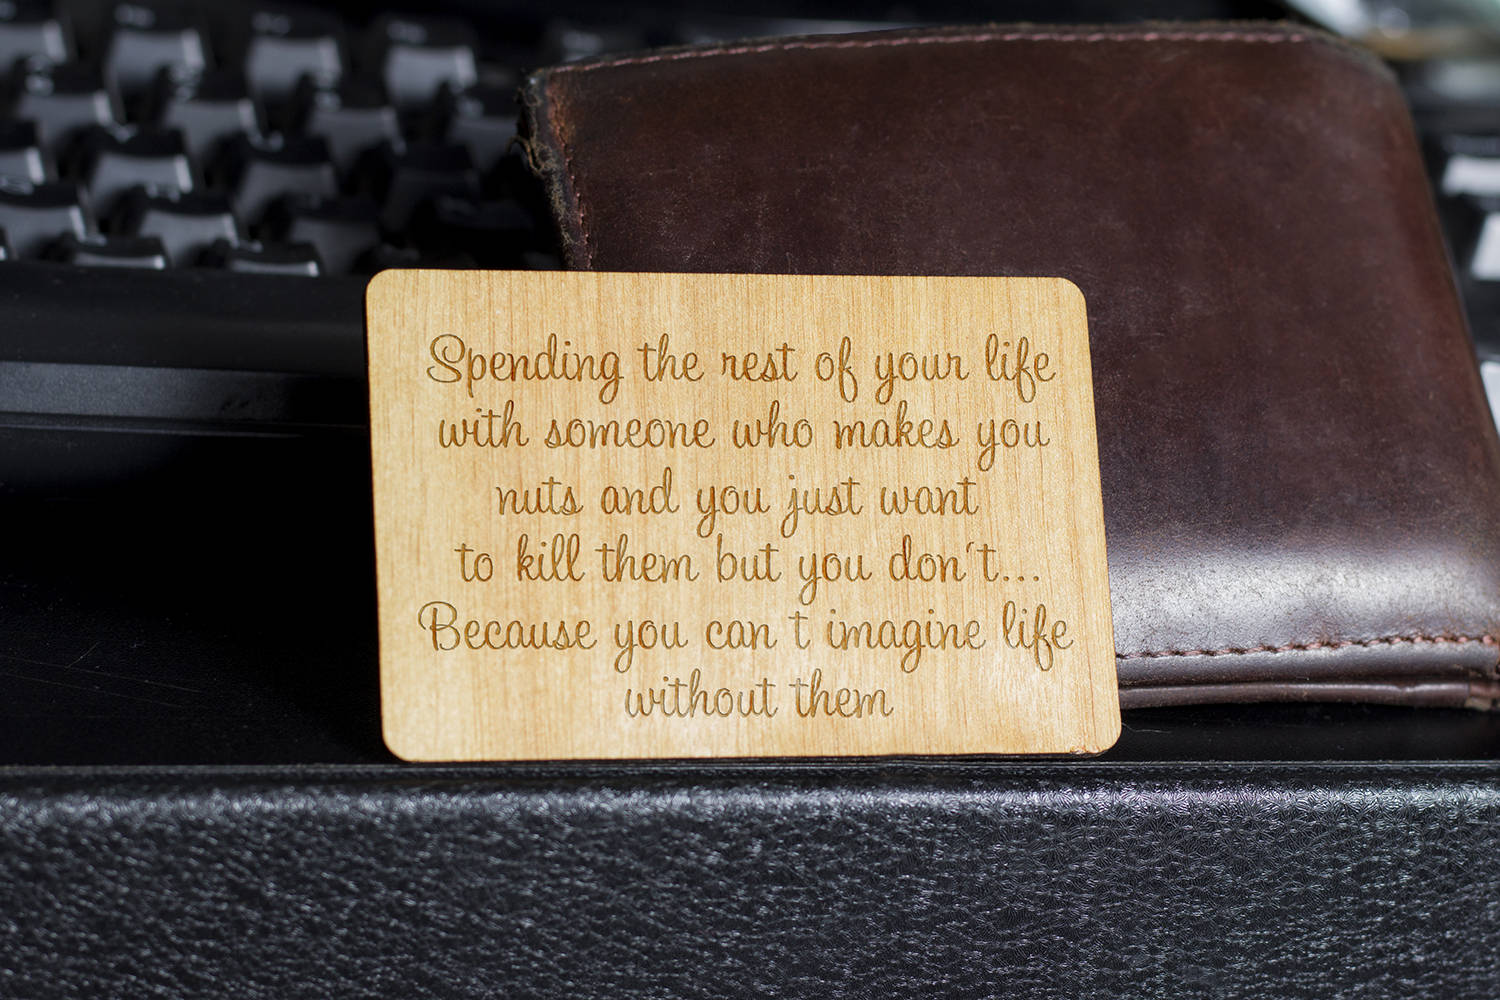 Spending the rest of your life
with someone who makes you
nuts and you just want
to kill them but you don't...
Because you can t imagine life
without them